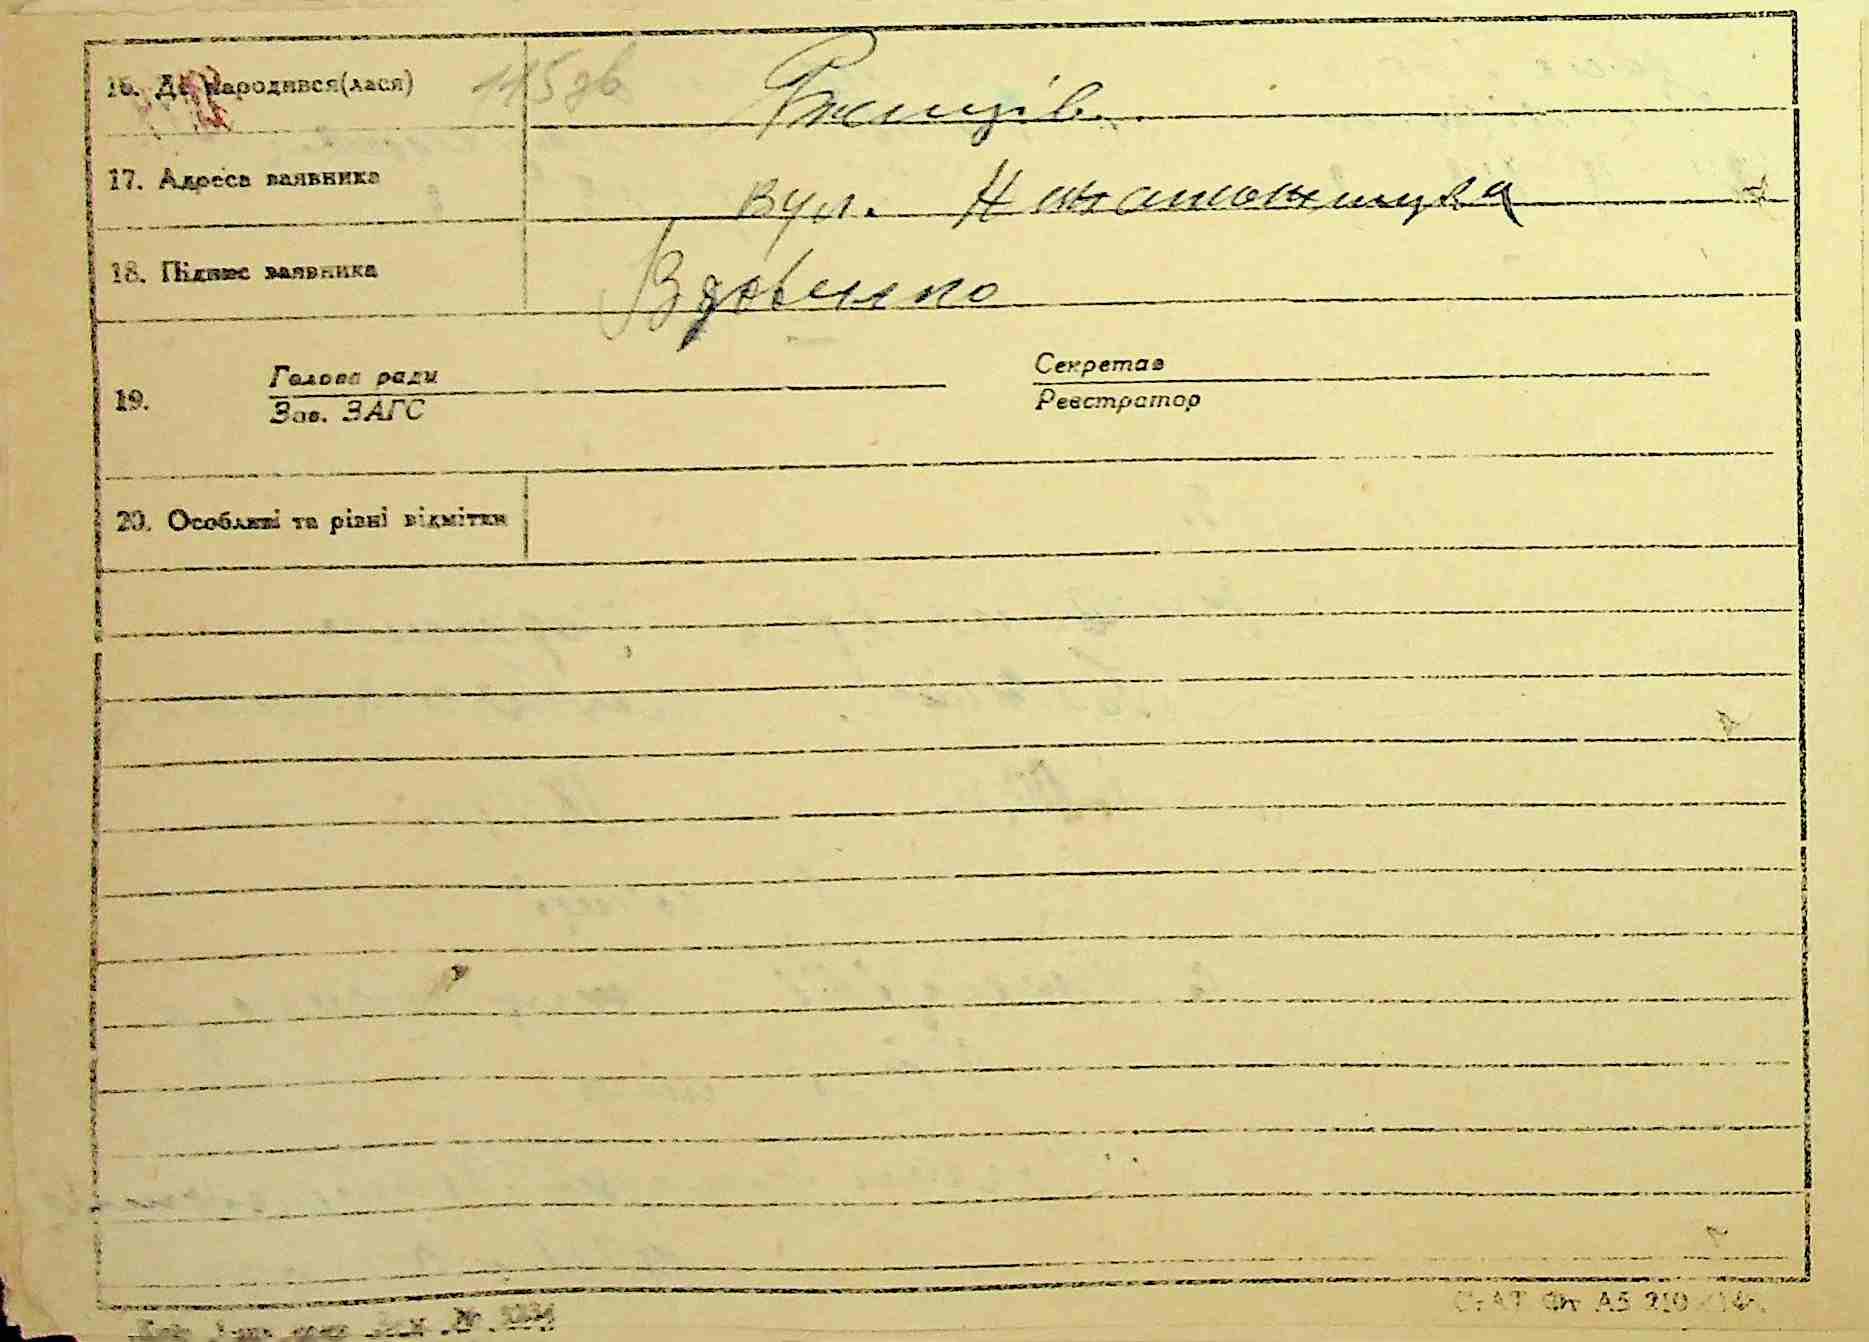 16. Де народився(лася) 145 зв Ржищів
17. Адреса заявника вул.
18. Підпис заявника Вдовенко
19. Голова ради Секретар
Зав. ЗАГС Реєстратор
20. Особливі та різні відмітки
Ст АТ Фт А5 210×148.